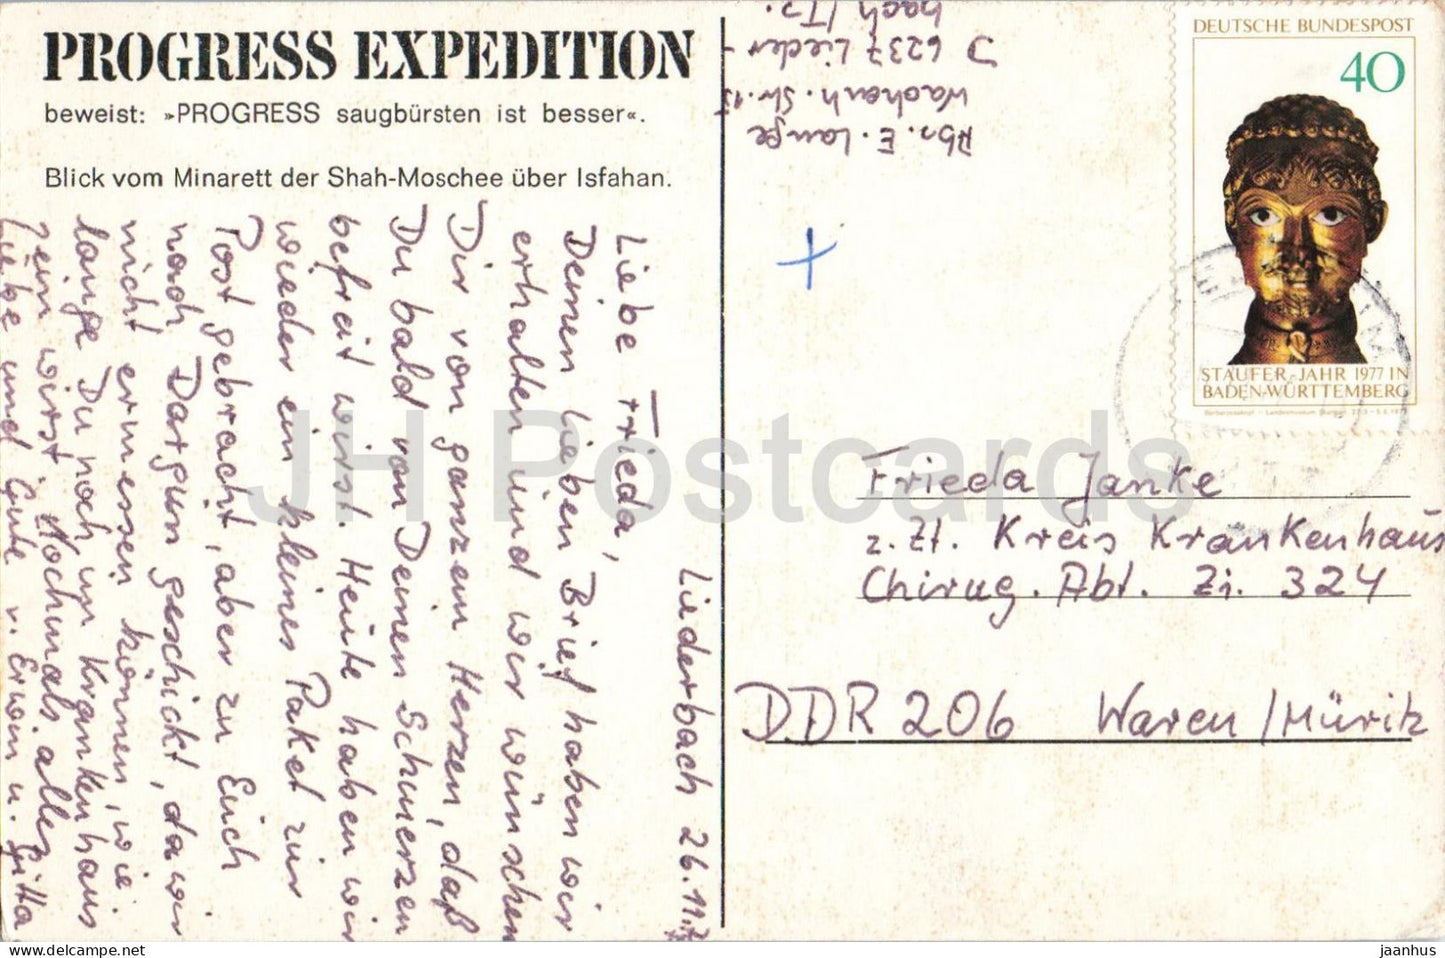 PROGRESS EXPEDITION
beweist: »PROGRESS saugbürsten ist besser«.
Blick vom Minarett der Shah-Moschee über Isfahan.
Liederbach 26.11.
Liebe Frieda,
Deinen lieben Brief haben wir
erhalten und wir wünschen
Dir von ganzem Herzen, daß
Du bald von Deinen Schmerzen
befreit wirst. Heute haben wir
wieder ein kleines Paket zur
Post gebracht, aber zu Euch
nach Dargun geschickt, da wir
nicht ermessen können, wie
lange Du noch im Krankenhaus
sein wirst. Nochmals alles
Liebe und Gute v. Erwin u. Gitta
Abs. E. Lange
Wachenh. Str. 15
D 6237 Lieder-
bach/Ts.
DEUTSCHE BUNDESPOST
40
STAUFER-JAHR 1977 IN
BADEN-WÜRTTEMBERG
Frieda Janke
z. Zt. Kreis Krankenhaus
Chirug. Abt. Zi. 324
DDR 206 Waren/Müritz
JH Postcards
jaanhus